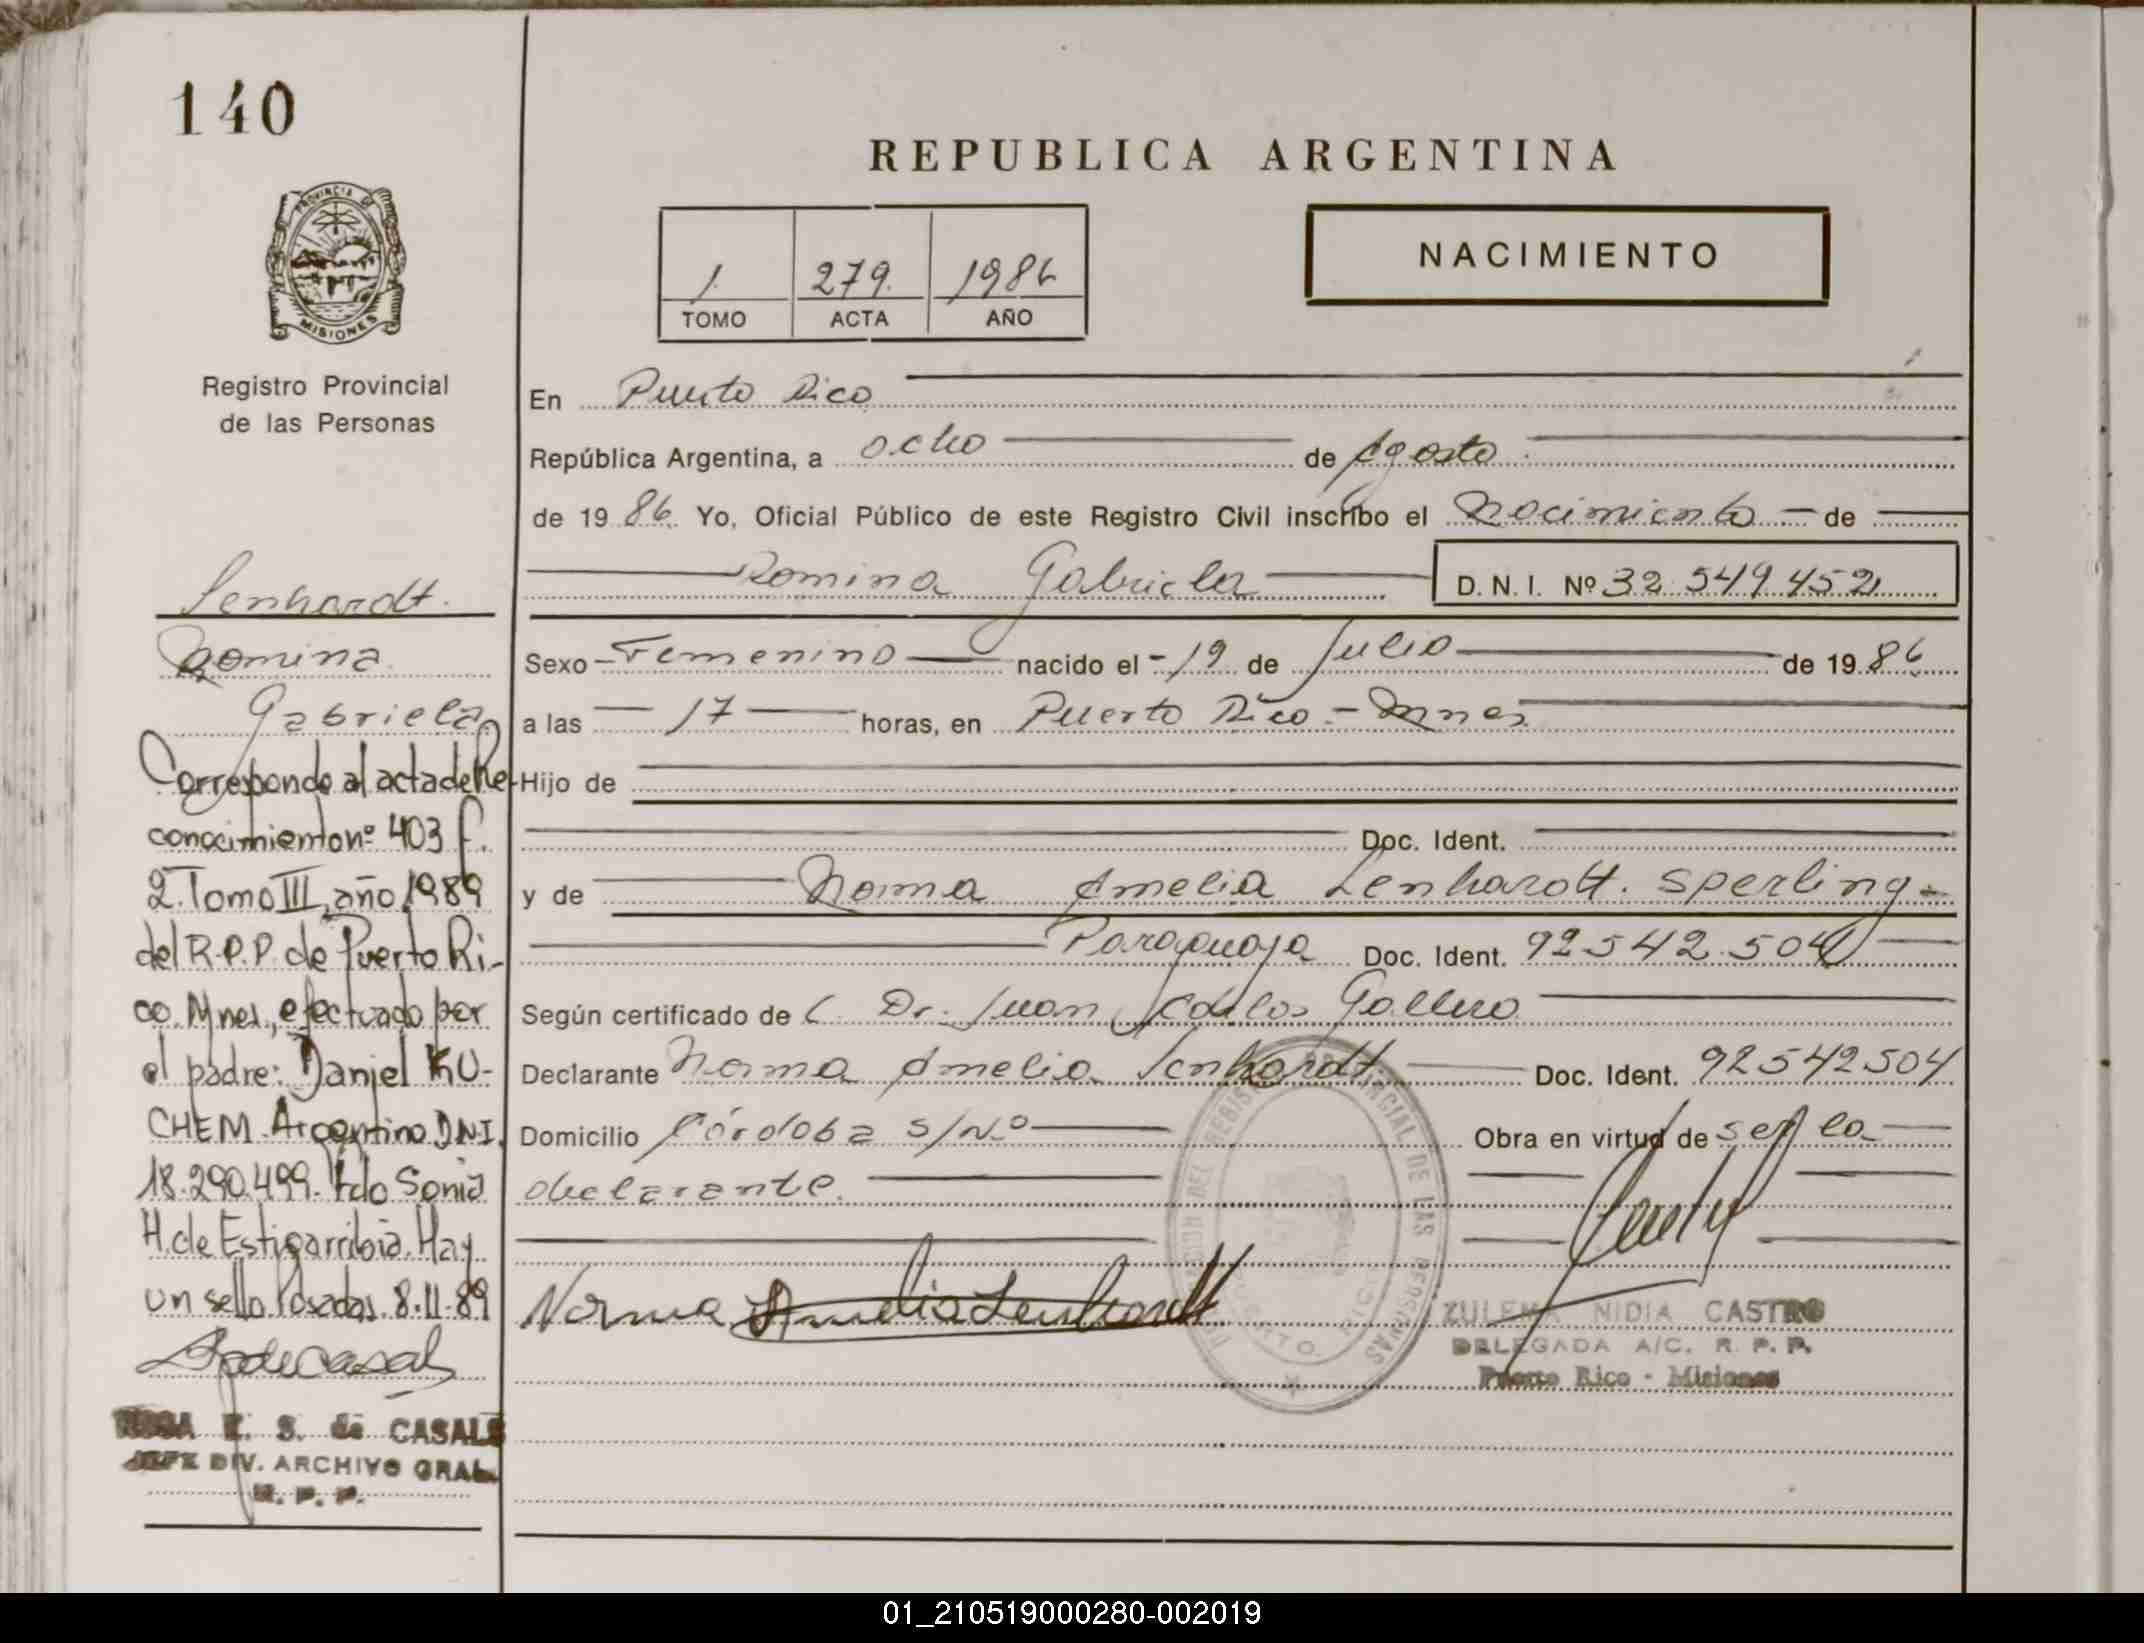 140
PROVINCIA DE
MISIONES
Registro Provincial
de las Personas
Lenhardt.
Romina
Gabriela
Corresponde al acta de Re-
conocimiento nº 403 f.
2. Tomo III, año 1989
del R.P.P. de Puerto Ri-
co. Mnes., efectuado por
el padre: Daniel KU-
CHEM. Argentino D.N.I.
18.290.499. Fdo Sonia
H. de Estigarribia. Hay
un sello. Posadas. 8-11-89
E. S. de CASALS
JEFE DIV. ARCHIVO GRAL.
R. P. P.
REPUBLICA ARGENTINA
1. 279. 1986
TOMO ACTA AÑO
NACIMIENTO
En Puerto Rico
República Argentina, a ocho de Agosto
de 19 86. Yo, Oficial Público de este Registro Civil inscribo el Nacimiento de
Romina Gabriela D. N. I. Nº 32.549.452
Sexo Femenino nacido el 19 de Julio de 19 86
a las 17 horas, en Puerto Rico - Mnes.
Hijo de
Doc. Ident.
y de Norma Amelia Lenhardt. Sperling -
Paraguaya Doc. Ident. 92542.504
Según certificado de Dr. Juan Carlos
Declarante Norma Amelia Lenhardt Doc. Ident. 92542504
Domicilio Córdoba s/Nº Obra en virtud de ser la
declarante.
Norma Amelia Lenhardt
ZULEMA NIDIA CASTRO
DELEGADA A/C. R. P. P.
Puerto Rico - Misiones
01_210519000280-002019